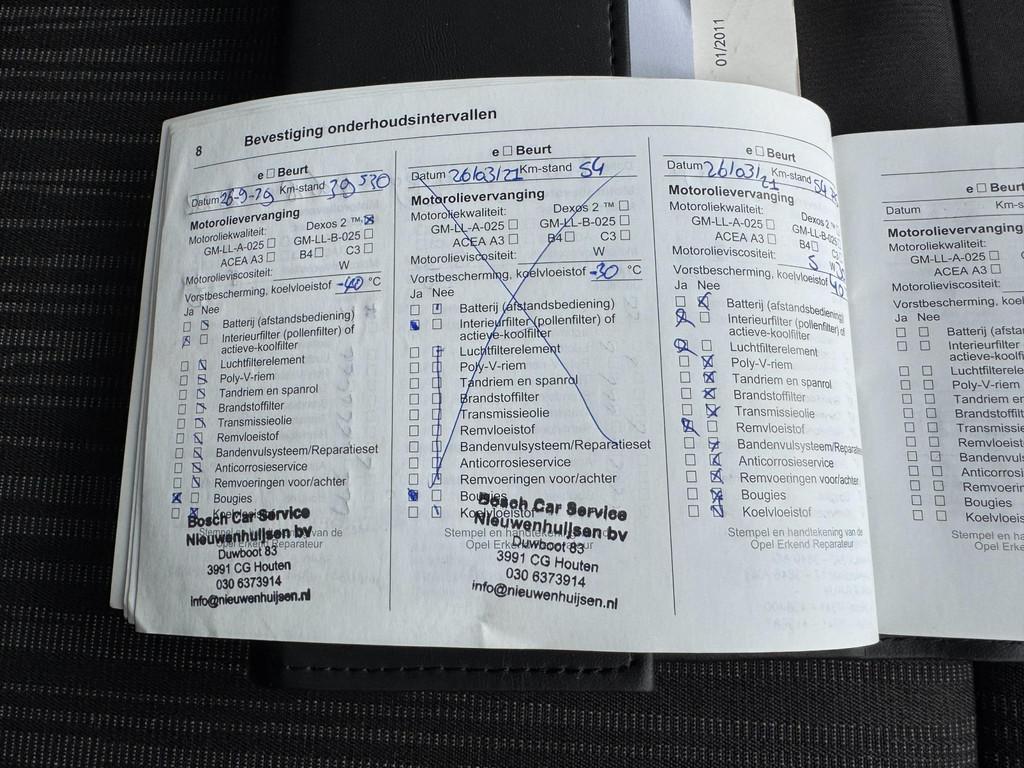 01/2011
8 Bevestiging onderhoudsintervallen
e □ Beurt
Datum 26-9-29 Km-stand 39530
Motorolievervanging
Motoroliekwaliteit: Dexos 2 ™ ☒
GM-LL-A-025 □ GM-LL-B-025 □
ACEA A3 □ B4 □ C3 □
Motorolieviscositeit: W
Vorstbescherming, koelvloeistof -40 °C
Ja Nee
Batterij (afstandsbediening)
Interieurfilter (pollenfilter) of
actieve-koolfilter
Luchtfilterelement
Poly-V-riem
Tandriem en spanrol
Brandstoffilter
Transmissieolie
Remvloeistof
Bandenvulsysteem/Reparatieset
Anticorrosieservice
Remvoeringen voor/achter
Bougies
Koelvloeistof
Bosch Car Service
Nieuwenhuijsen bv
Duwboot 83
3991 CG Houten
030 6373914
info@nieuwenhuijsen.nl
van de
Opel Erkend Reparateur
e □ Beurt
Datum 26/03/21 Km-stand 54
Motorolievervanging
Motoroliekwaliteit: Dexos 2 ™ □
GM-LL-A-025 □ GM-LL-B-025 □
ACEA A3 □ B4 □ C3 □
Motorolieviscositeit: W
Vorstbescherming, koelvloeistof -30 °C
Ja Nee
Batterij (afstandsbediening)
Interieurfilter (pollenfilter) of
actieve-koolfilter
Luchtfilterelement
Poly-V-riem
Tandriem en spanrol
Brandstoffilter
Transmissieolie
Remvloeistof
Bandenvulsysteem/Reparatieset
Anticorrosieservice
Remvoeringen voor/achter
Bougies
Koelvloeistof
Stempel en handtekening
Bosch Car Service
Nieuwenhuijsen bv
Duwboot 83
3991 CG Houten
030 6373914
info@nieuwenhuijsen.nl
e □ Beurt
Datum 26/03/21 Km-stand 54
Motorolievervanging
Motoroliekwaliteit: Dexos 2 ™
GM-LL-A-025 □ GM-LL-B-025
ACEA A3 □ B4 □ C3
Motorolieviscositeit: 5 W
Vorstbescherming, koelvloeistof 40
Ja Nee
Batterij (afstandsbediening)
Interieurfilter (pollenfilter) of
actieve-koolfilter
Luchtfilterelement
Poly-V-riem
Tandriem en spanrol
Brandstoffilter
Transmissieolie
Remvloeistof
Bandenvulsysteem/Repara
Anticorrosieservice
Remvoeringen voor/achter
Bougies
Koelvloeistof
Stempel en handtekening van de
Opel Erkend Reparateur
e □ Beurt
Datum Km-s
Motorolievervanging
Motoroliekwaliteit:
GM-LL-A-025 □
ACEA A3 □
Motorolieviscositeit:
Vorstbescherming, koel
Ja Nee
Batterij (afsta
Interieurfilter
actieve-koolf
Luchtfilterele
Poly-V-riem
Tandriem en
Brandstoffilt
Transmissie
Remvloeist
Bandenvuls
Anticorrosi
Remvoerin
Bougies
Koelvloeis
Stempel en ha
Opel Erke